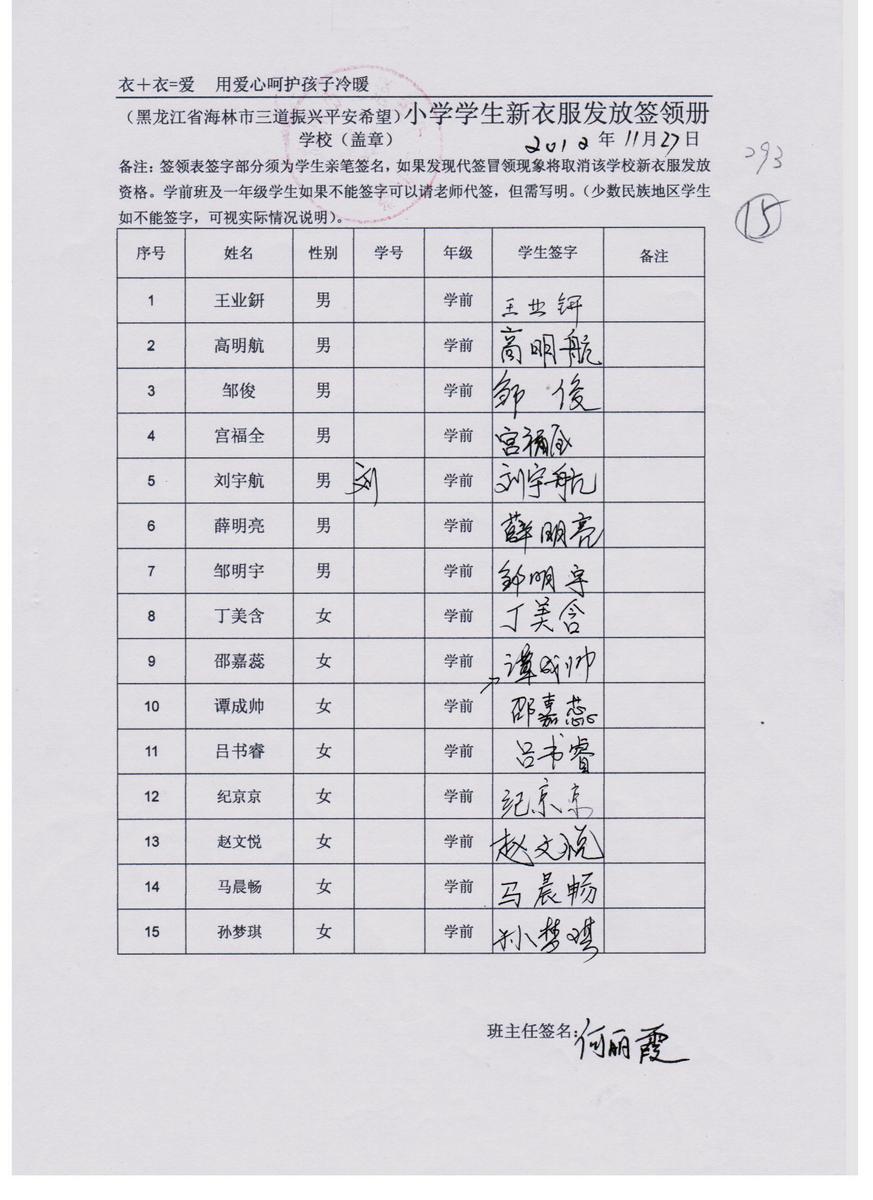 衣＋衣=爱 用爱心呵护孩子冷暖
（黑龙江省海林市三道振兴平安希望）小学学生新衣服发放签领册
学校（盖章） 2012 年 11月27日
293
备注：签领表签字部分须为学生亲笔签名，如果发现代签冒领现象将取消该学校新衣服发放
资格。学前班及一年级学生如果不能签字可以请老师代签，但需写明。（少数民族地区学生
如不能签字，可视实际情况说明）。
15
序号 姓名 性别 学号 年级 学生签字 备注
1 王业銒 男 学前 王业銒
2 高明航 男 学前 高明航
3 邹俊 男 学前 邹俊
4 宫福全 男 学前 宫福全
5 刘宇航 男 刘 学前 刘宇航
6 薛明亮 男 学前 薛明亮
7 邹明宇 男 学前 邹明宇
8 丁美含 女 学前 丁美含
9 邵嘉蕊 女 学前 谭成帅
10 谭成帅 女 学前 邵嘉蕊
11 吕书睿 女 学前 吕书睿
12 纪京京 女 学前 纪京京
13 赵文悦 女 学前 赵文悦
14 马晨畅 女 学前 马晨畅
15 孙梦琪 女 学前 孙梦琪
班主任签名：何丽霞